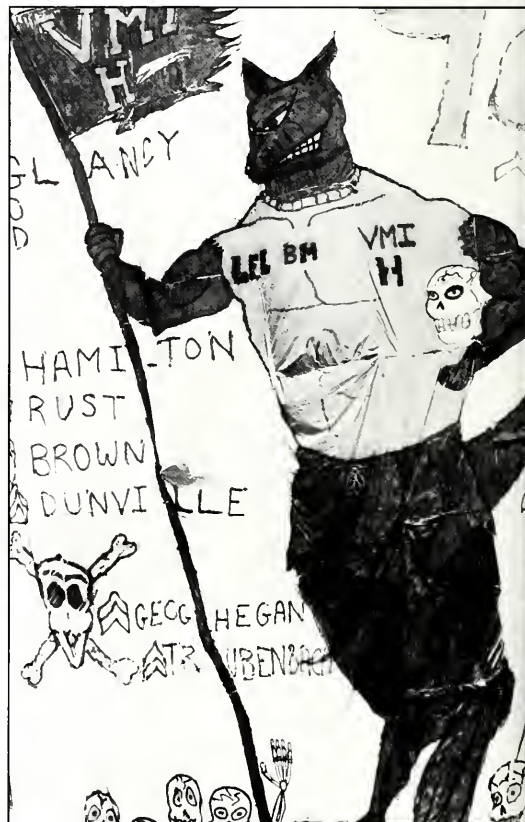 VMI
H
GLANCY
O
D
BM
VMI
H
HAMILTON
RUST
BROWN
DUNVILLE
GEOGHEGAN
TRAUBENBACH